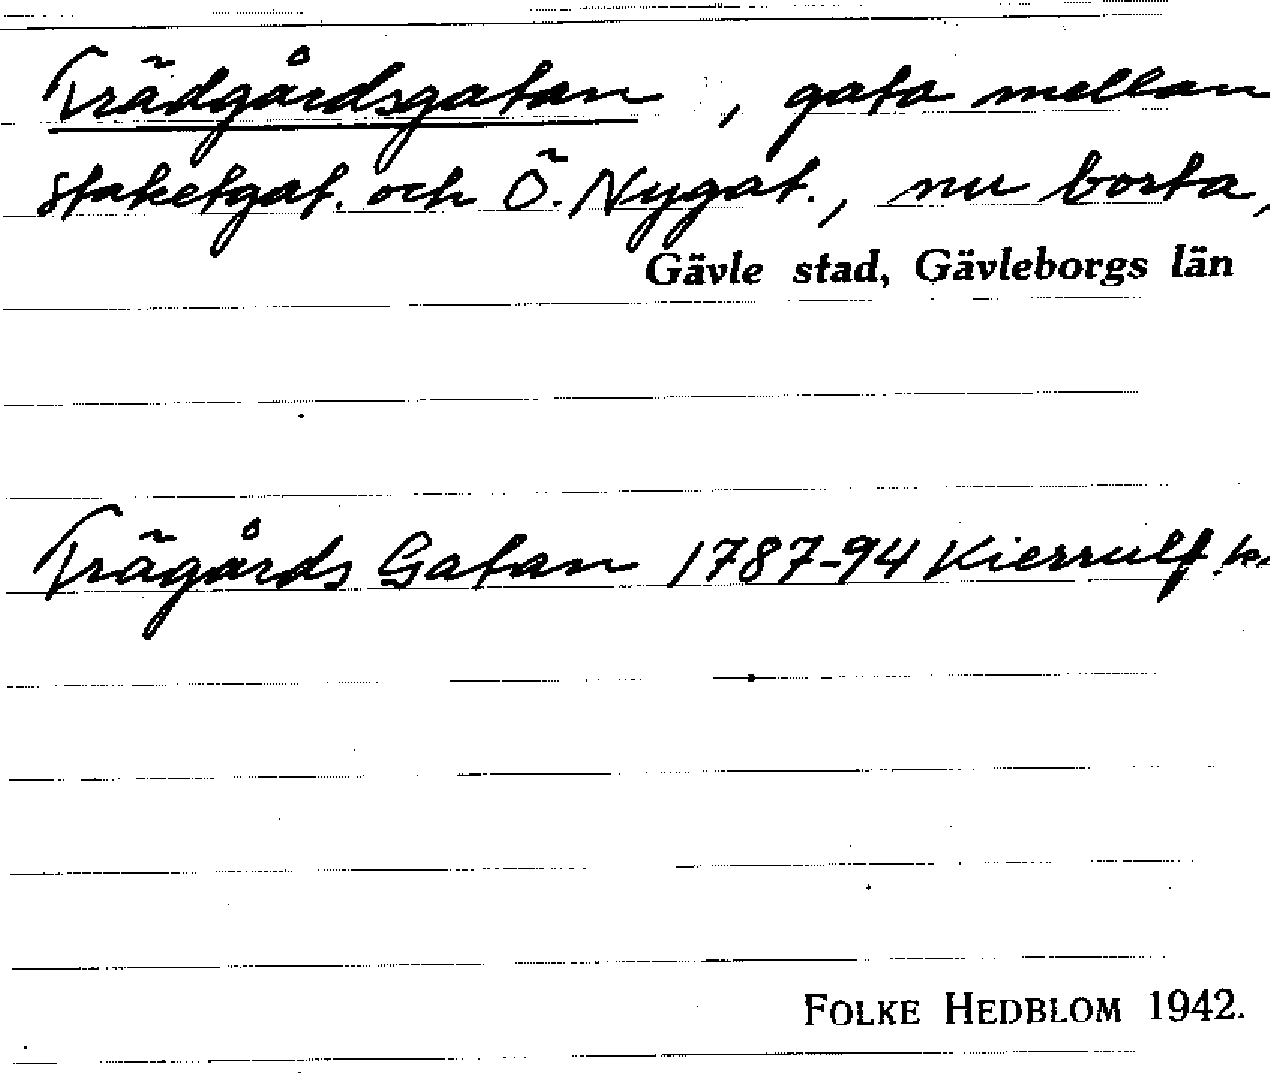 Trädgårdsgatan, gata mellan
Staketgat. och Ö. Nygat., nu borta,
Gävle stad, Gävleborgs län
Trägårds Gatan 1787-94 Kierrulf k.
FOLKE HEDBLOM 1942.